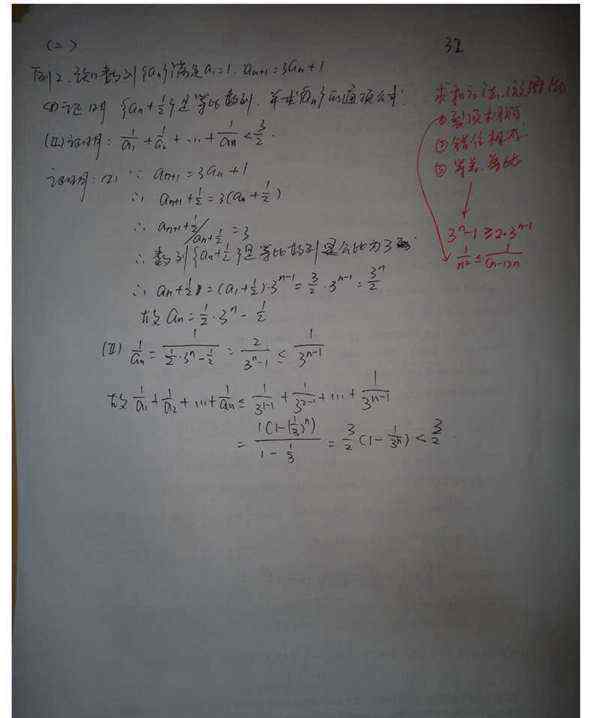 (2)
32
例2.设数列{an}满足a1=1.an+1=3an+1
(I)证明{an+1/2}是等比数列.并求{an}的通项公式.
(II)证明:1/a1+1/a2+...+1/an<3/2.
证明:(I)∵an+1=3an+1
∴an+1+1/2=3(an+1/2)
∴an+1+1/2/an+1/2=3
∴数列{an+1/2}是等比数列且公比为3
∴an+1/2=(a1+1/2)·3^n-1=3/2·3^n-1=3^n/2
故an=1/2·3^n-1/2
(II)1/an=1/(1/2·3^n-1/2)=2/(3^n-1)≤1/3^n-1
故1/a1+1/a2+...+1/an≤1/3^1-1+1/3^2-1+...+1/3^n-1
=1(1-(1/3)^n)/(1-1/3)=3/2(1-1/3^n)<3/2.
求和方法
①裂项相消
②错位相减
③等差.等比
3^n-1≥2·3^n-1
1/n^2≤1/(n-1)n